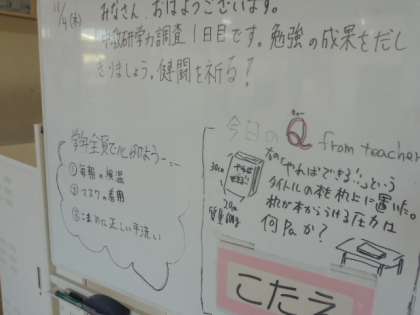 みなさん、おはようございます。
学力調査1日目です。勉強の成果をだし
きりましょう。健闘を祈る!
学年全員で心がけよう…
①毎朝の検温
②マスクの着用
③こまめに正しい手洗い
今日の Q from teacher
右の「やればできる!」という
タイトルの本を机上に置いた。
机が本からうける圧力は
何Paか?
30cm
20cm
質量
こたえ